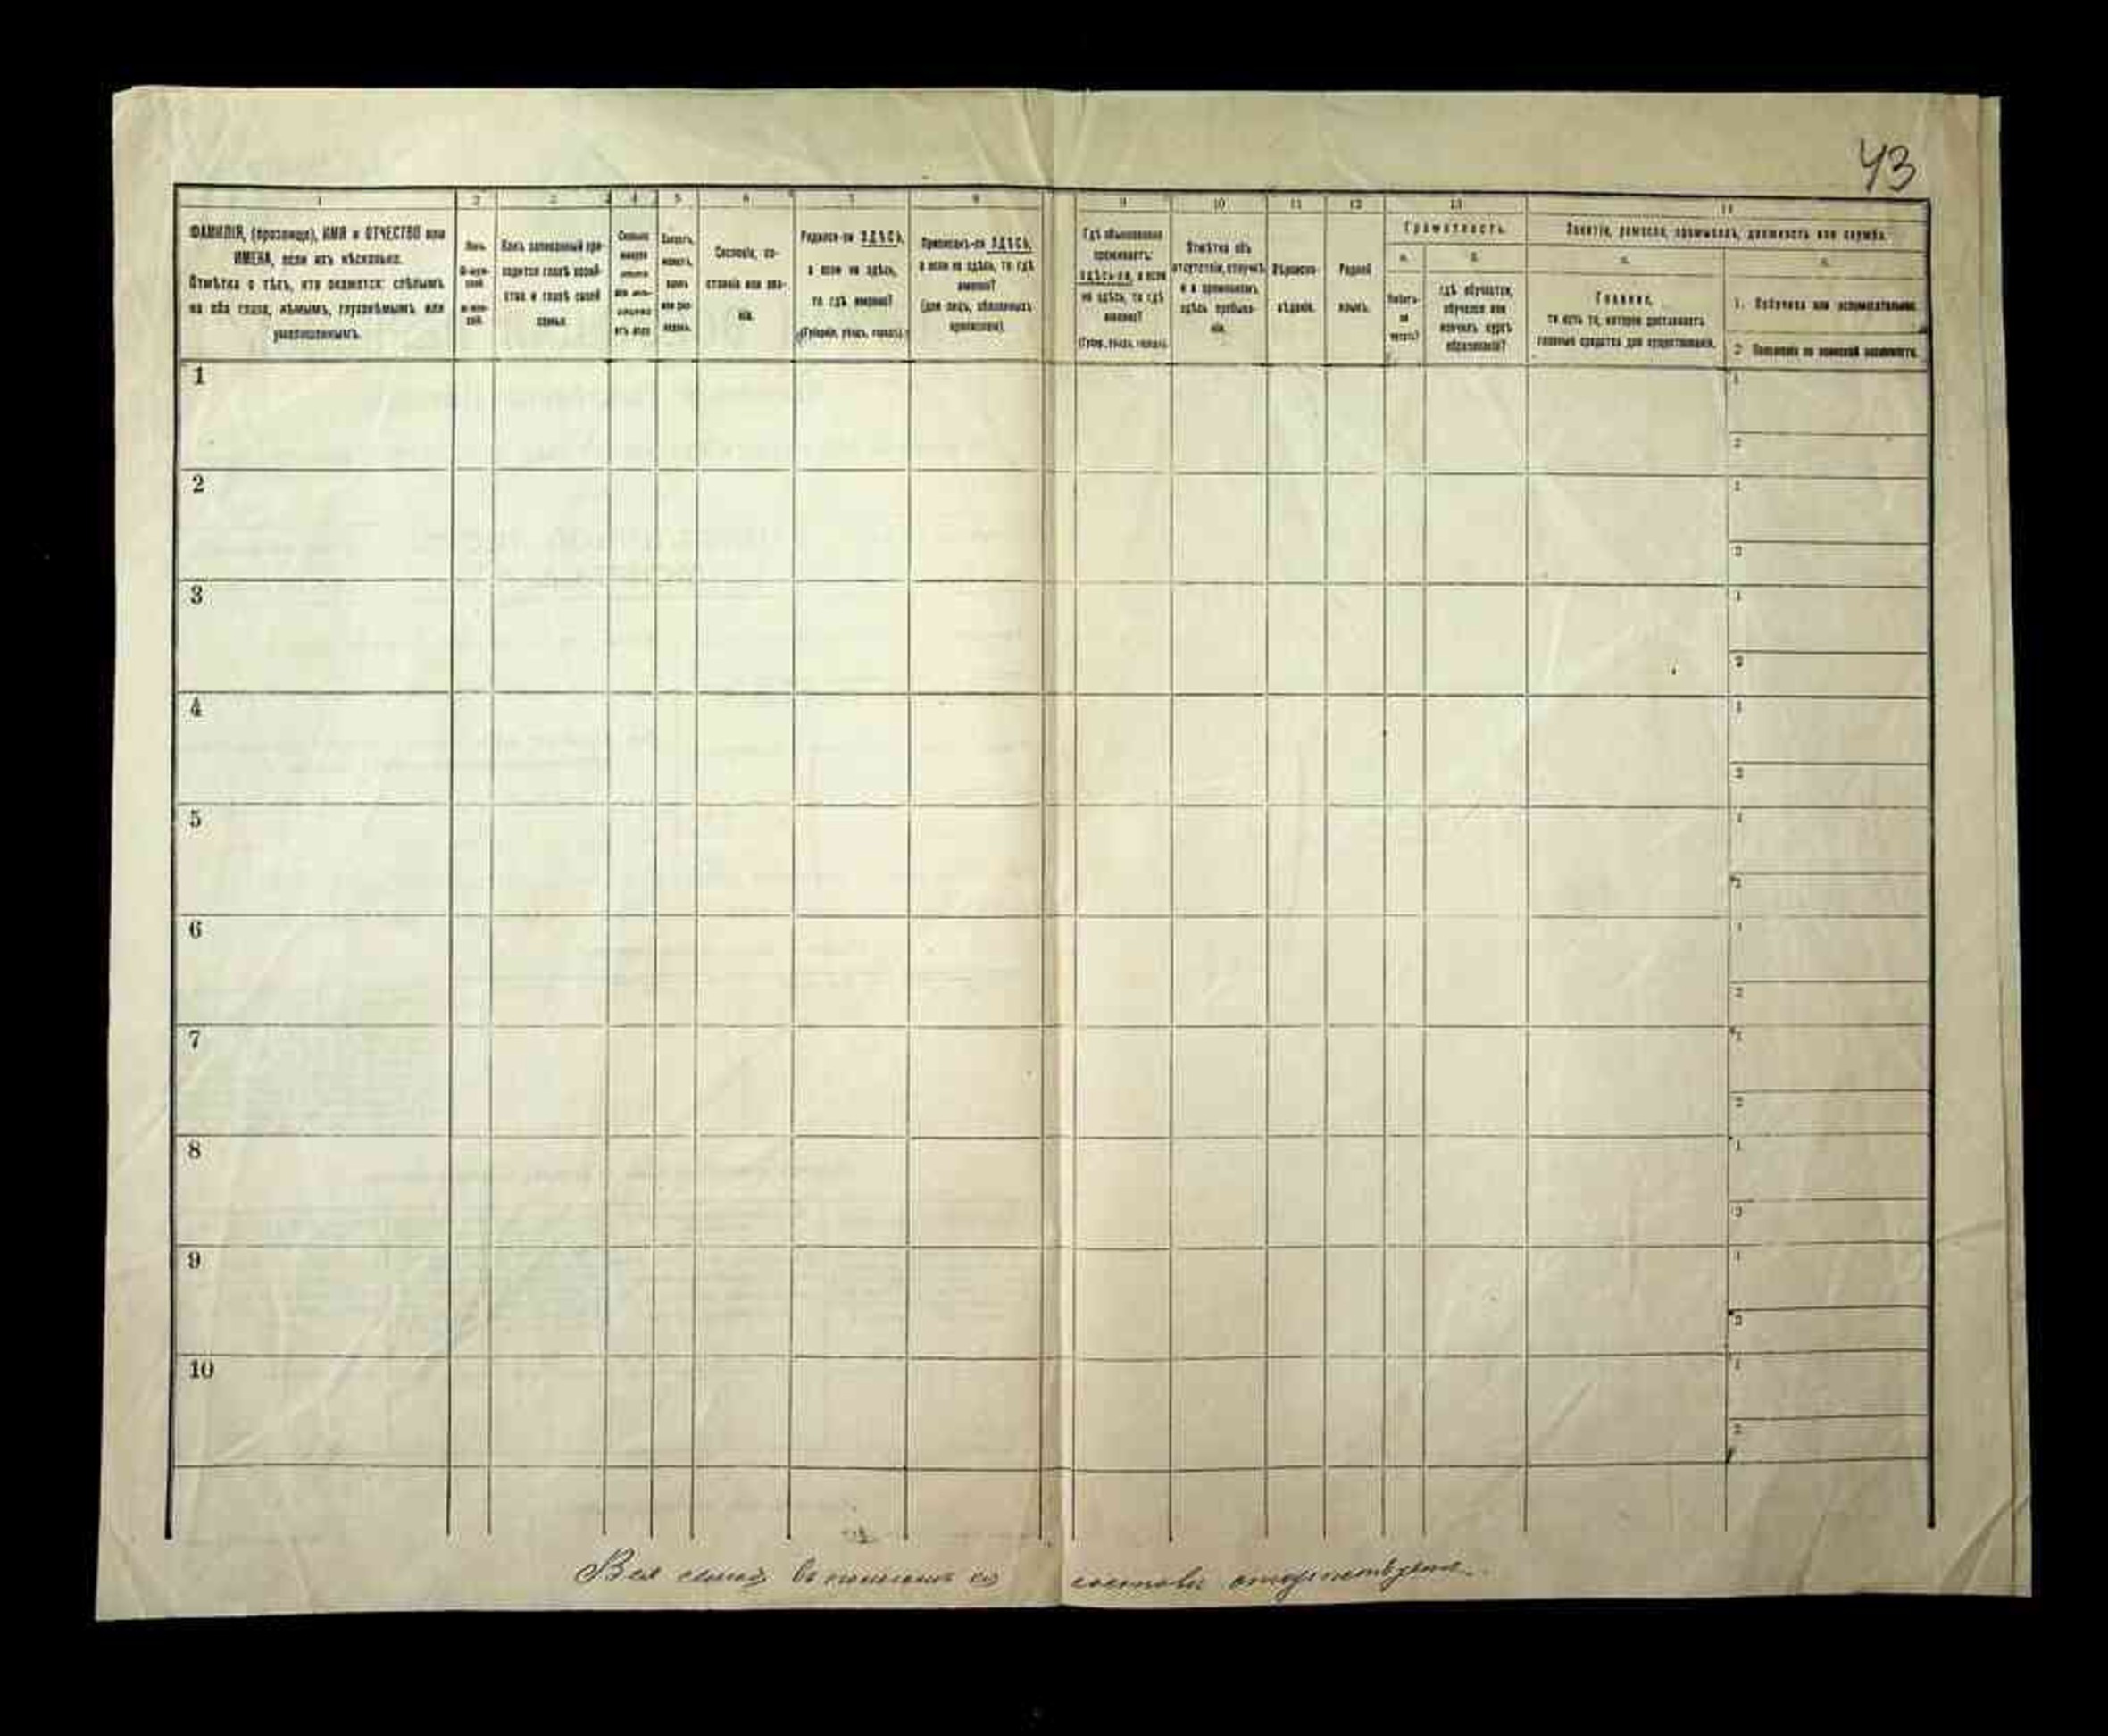 43
1
2
3
4
5
6
7
8
9
10
11
12
13
14
ФАМИЛІЯ, (прозвище), ИМЯ и ОТЧЕСТВО или
ИМЕНА, если ихъ нѣсколько.
Отмѣтка о тѣхъ, кто окажется: слѣпымъ
на оба глаза, нѣмымъ, глухонѣмымъ или
умалишеннымъ.
Полъ.
Какъ записанный при-
ходится главѣ хозяй-
ства и главѣ своей
семьи.
Сословіе, со-
стояніе или зва-
ніе.
Родился-ли ЗДѢСЬ,
а если не здѣсь,
то гдѣ именно?
(Губернія, уѣздъ, городъ).
Приписанъ-ли ЗДѢСЬ,
а если не здѣсь, то гдѣ
именно?
(для лицъ, обязанныхъ
припискою).
Гдѣ обыкновенно
проживаетъ:
здѣсь-ли, а если
не здѣсь, то гдѣ
именно?
(Губер., уѣздъ, городъ).
Отмѣтка объ
отсутствіи, отлучкѣ
и о временномъ
здѣсь пребыва-
ніи.
Вѣроиспо-
вѣданіе.
Родной
языкъ.
Грамотность.
а.
б.
Умѣетъ-
ли
читать?
гдѣ обучается,
обучался или
кончилъ курсъ
образованія?
Занятіе, ремесло, промыселъ, должность или служба.
а.
б.
Главное,
то есть то, которое доставляетъ
главныя средства для существованія.
1. Побочное или вспомогательное.
2. Положеніе по воинской повинности.
1
1
2
2
1
2
3
1
2
4
1
2
5
1
2
6
1
2
7
1
2
8
1
2
9
1
2
10
1
2
Вся семья въ полномъ составѣ отсутствуетъ.